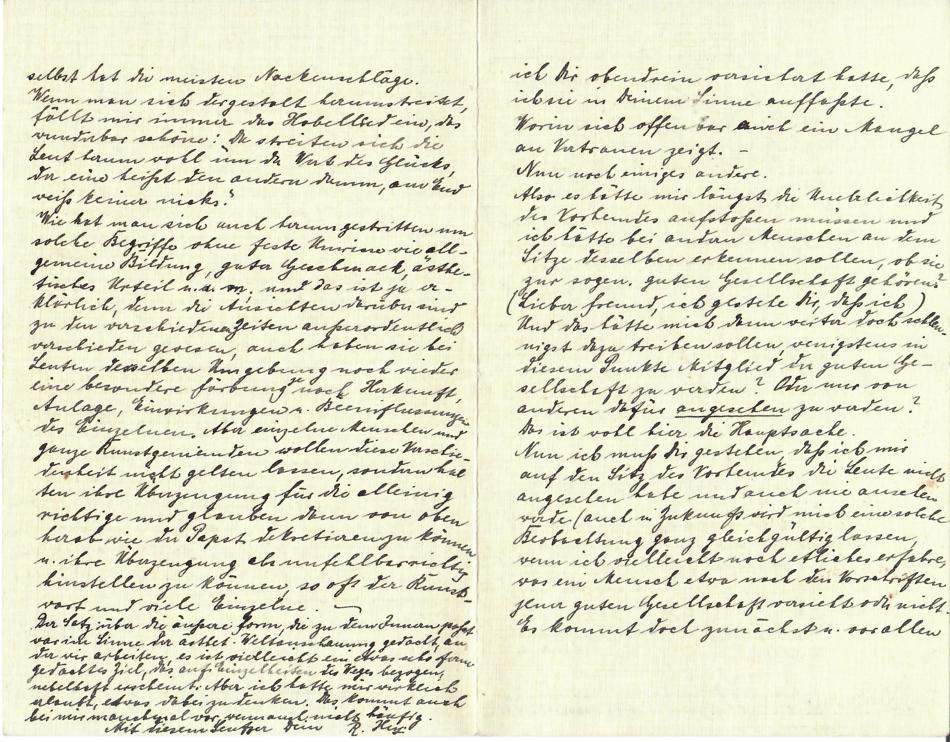 selbst hat die meisten Nackenschläge.
Wenn man sich dergestalt herumstreitet,
fällt mir immer das Hobellied ein, das
wunderbar schöne: Da streiten sich die
Leut herum wohl um den Wert des Glücks,
der eine heißt den andern dumm, am End
weiß keiner nichts!
Wie hat man sich auch herumgestritten um
solche Begriffe ohne feste Umrisse wie all-
gemeine Bildung, guter Geschmack, ästhe-
tisches Urteil u.s.w., und das ist ja er-
klärlich, denn die Ansichten darüber sind
zu den verschiedenen Zeiten außerordentlich
verschieden gewesen, auch haben sie bei
Leuten derselben Umgebung noch wieder
eine besondere Färbung je nach Herkunft,
Anlage, Einwirkungen u. Beeinflussungen
des Einzelnen. Aber einzelne Menschen und
ganze Kunstgemeinden wollen diese Verschie-
denheit nicht gelten lassen, sondern hal-
ten ihre Überzeugung für die alleinig
richtige und glauben dann von oben
herab wie der Papst dekretieren zu können
u. ihre Überzeugung als unfehlbar richtig
hinstellen zu können, so oft der Kunst-
wart und viele Einzelne. —
Der Satz über die äußere Form, die zu dem Innern paßt
war im Sinne der ästhet. Weltanschauung gedacht, an
der wir arbeiten, es ist vielleicht ein etwas sehr fern
gedachtes Ziel, das auf Einzelheiten des Weges bezogen,
nebelhaft erscheint. Aber ich hatte mir wirklich
erlaubt, etwas dabei zu denken. Das kommt auch
bei mir manchmal vor, wenn auch nicht häufig.
Mit diesem Seufzer Dein R.
ich Dir obendrein versichert hatte, daß
ich sie in Deinem Sinne auffaßte.
Worin sich offenbar auch ein Mangel
an Vertrauen zeigt. —
Nun noch einiges andere.
Also es hätte mir längst die
des Vorhemdes aufstoßen müssen und
ich hätte bei andern Menschen an dem
Sitze desselben erkennen sollen, ob sie
zur sogen. guten Gesellschaft gehören?
(Lieber Freund, ich gestehe Dir, daß ich)
Und das hätte mich dann weiter doch schleu-
nigst dazu treiben sollen, wenigstens in
diesem Punkte Mitglied der guten Ge-
sellschaft zu werden? Oder nur von
anderen dafür angesehen zu werden?
Das ist wohl hier die Hauptsache.
Nun ich muß Dir gestehen, daß ich mir
auf den Sitz des Vorhemdes die Leute nicht
angesehen habe und auch nie ansehen
werde (auch in Zukunft wird mich eine solche
Beobachtung ganz gleichgültig lassen,
wenn ich vielleicht noch etliches erfahre,
was ein Mensch etwa nach den Vorschriften
jener guten Gesellschaft vorsieht oder nicht
Es kommt doch zunächst u. vor allen